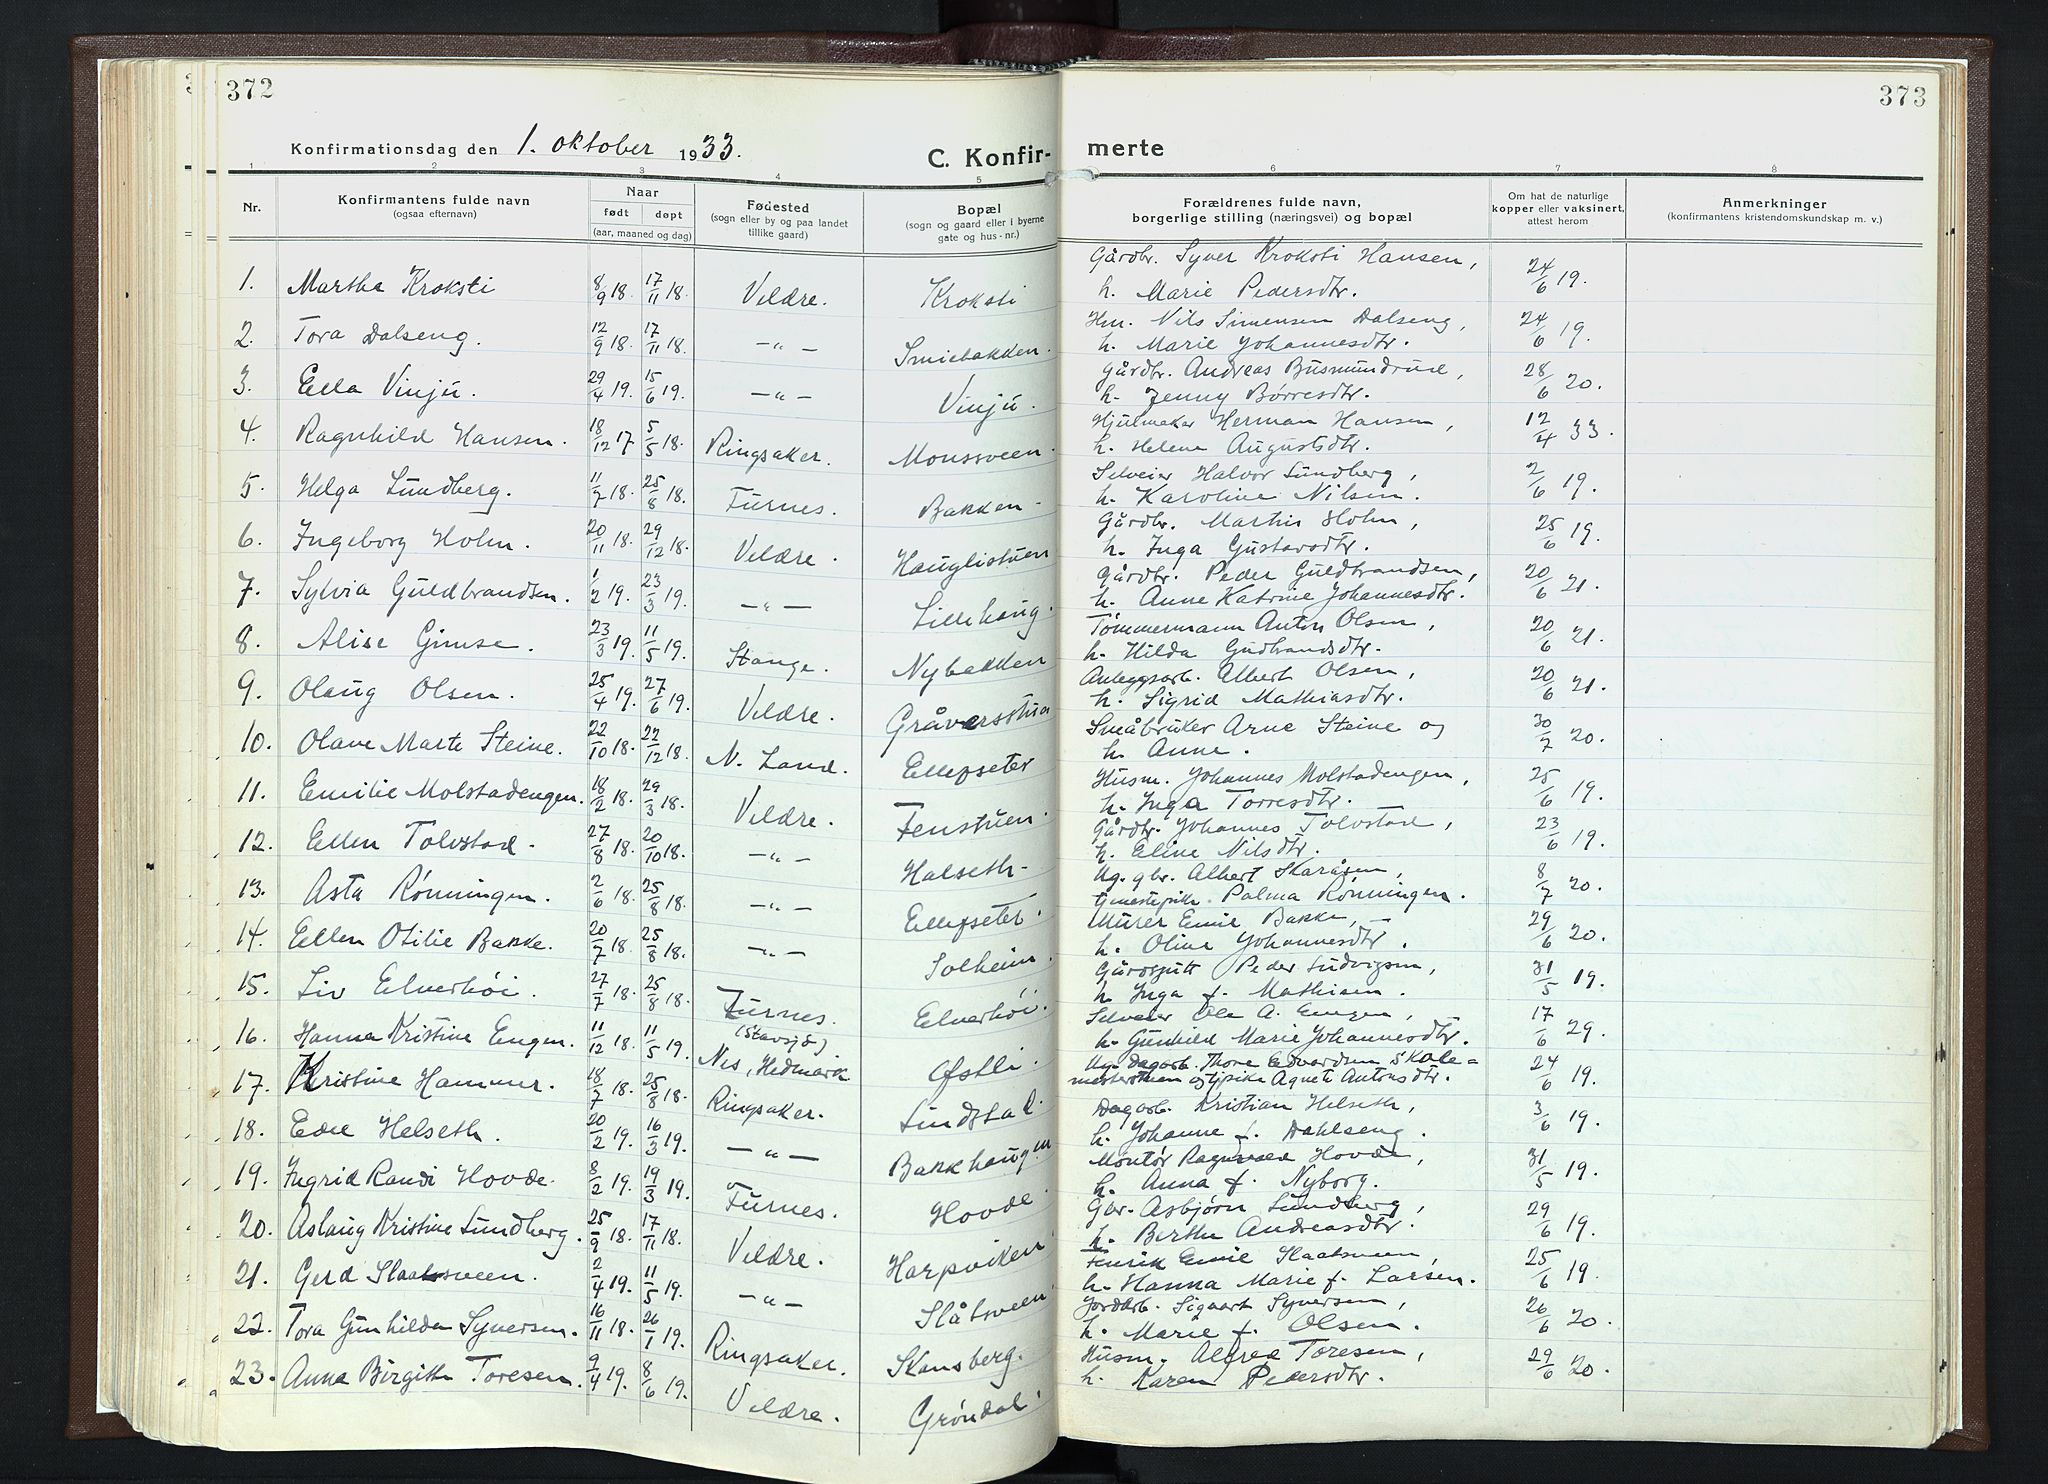 372
373
Konfirmationsdag den 1. oktober 1933.
C. Konfir-
merte
1 2 3 4 5 6 7 8
Nr.
Konfirmantens fulde navn
(ogsaa efternavn)
Naar
født døpt
(aar, maaned og dag)
Fødested
(sogn eller by og paa landet
tillike gaard)
Bopæl
(sogn og gaard eller i byerne
gate og hus-nr.)
Forældrenes fulde navn,
borgerlige stilling (næringsvei) og bopæl
Om hat de naturlige
kopper eller vaksinert,
attest herom
Anmerkninger
(konfirmantens kristendomskundskap m. v.)
1. Martha Kroksti 8/9 18. 17/11 18. Veldre. Kroksti Gårdbr. Syver Kroksti Hansen,
h. Marie Pedersdtr. 24/6 19.
2. Tora Dalseng. 12/9 18. 17/11 18. —"— Smiebakken. Hm. Nils Simensen Dalseng,
h. Marie Johannesdtr. 24/6 19.
3. Ella Vinju. 29/4 19. 15/6 19. —"— Vinju. Gårdbr. Andreas Busmundrud,
h. Jenny Børresdtr. 28/6 20.
4. Ragnhild Hansen. 18/12 17 5/5 18. Ringsaker. Monssveen. Hjulmaker Herman Hansen,
h. Helene Augustsdtr. 12/4 33.
5. Helga Lundberg. 11/7 18. 25/8 18. Furnes. Bakken. Selveier Halvor Lundberg,
h. Karoline Nilsen. 2/6 19.
6. Ingeborg Holm. 20/11 18. 29/12 18. Veldre. Hauglistuen Gårdbr. Martin Holm,
h. Inga Gustavsdtr. 25/6 19.
7. Sylvia Guldbrandsen. 1/2 19. 23/3 19. —"— Lillehaug. Gårdbr. Peder Guldbrandsen,
h. Anne Katrine Johannesdtr. 20/6 21.
8. Alise Gimse. 23/3 19. 11/5 19. Stange. Nybakken Tømmermann Anton Olsen,
h. Hilda Gudbrandsdtr. 20/6 21.
9. Olaug Olsen. 25/4 19. 27/6 19. Veldre. Gråversstua Anleggsarb. Albert Olsen,
h. Sigrid Mathiasdtr. 20/6 21.
10. Olave Marte Steine. 22/10 18. 22/12 18. N. Land. Ellefseter Småbruker Arne Steine og
h. Anne. 30/7 20.
11. Emilie Molstadengen. 18/2 18. 29/3 18. Veldre. Fenstuen. Husm. Johannes Molstadengen,
h. Inga Torresdtr. 25/6 19.
12. Ellen Tolvstad. 27/8 18. 20/10 18. —"— Halseth. Gårdbr. Johannes Tolvstad,
h. Eline Nilsdtr. 23/6 19.
13. Asta Rønningen. 2/6 18. 25/8 18. —"— Ellefseter. Ug. gbr. Albert Skaråsen,
tjenestepike Palma Rønningen. 8/7 20.
14. Ellen Otilie Bakke. 20/7 18. 25/8 18. —"— Solheim. Murer Emil Bakke, —
h. Oline Johannesdtr. 29/6 20.
15. Liv Elverhøi. 27/7 18. 25/8 18. Furnes. Elverhøi. Gårdsgutt Peder Ludvigsen,
h. Inga f. Mathisen. 31/5 19.
16. Hanna Kristine Engen. 11/12 18. 11/5 19. (Stavsjø) Nes, Hedmark Østli. Selveier Ole A. Engen,
h. Gunhild Marie Johannesdtr. 17/6 29.
17. Kristine Hammer. 18/7 18. 25/8 18. Ringsaker. Lindstad. Ug. dagarb. Thore Edvardsen Skole=
mesterstuen og pike Agnete Antonsdtr. 24/6 19.
18. Edel Helseth. 20/2 19. 16/3 19. —"— Bakkhaugen Dagarb. Kristian Helseth,
h. Johanne f. Dahlseng. 3/6 19.
19. Ingrid Randi Hovde. 8/2 19. 19/3 19. Furnes. Hovde. Montør Hovde,
h. Anna f. Nyborg. 31/5 19.
20. Aslaug Kristine Lundberg. 25/9 18. 17/11 18. Veldre. Harpviken Gbr. Asbjørn Lundberg,
h. Berthe Andreasdtr. 29/6 19.
21. Gerd Slaatsveen. 2/4 19. 11/5 19. —"— Slåtsveen Emil Slaatsveen,
h. Hanna Marie f. Larsen. 25/6 19.
22. Tora Gunhilda Syversen. 16/11 18. 26/1 19. Ringsaker. Skansberg. Jordarb. Sigvart Syversen,
h. Marie f. Olsen. 26/6 20.
23. Anna Birgitte Toresen. 9/4 19. 8/6 19. Veldre. Grøndal Husm. Alfred Toresen,
h. Karen Pedersdtr. 29/6 20.